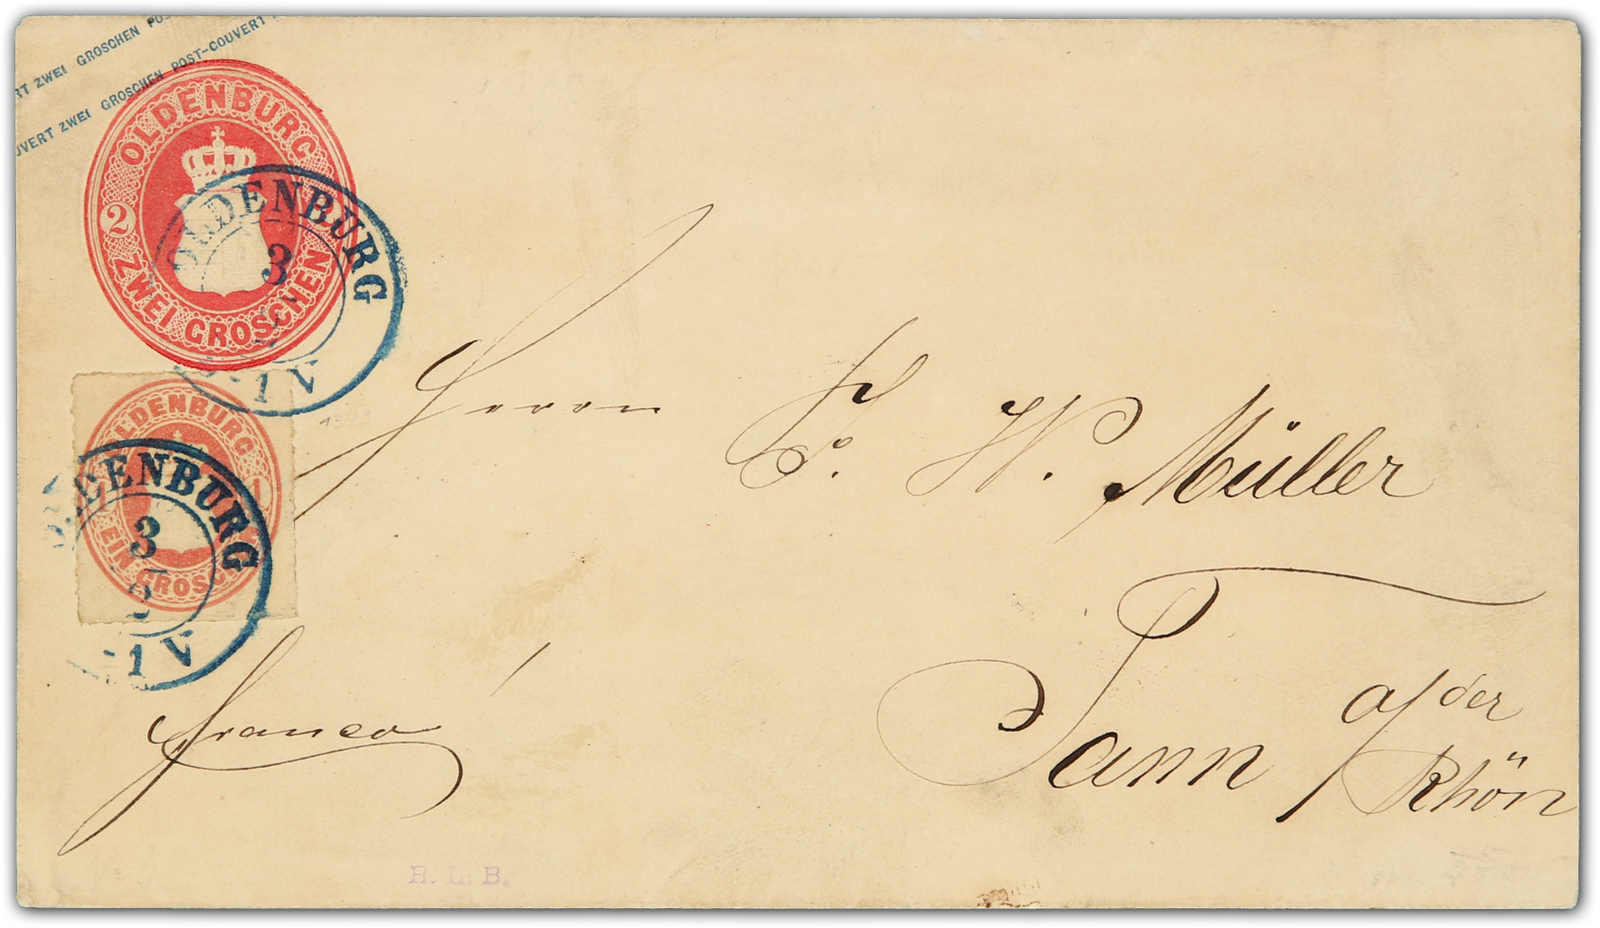 RT ZWEI GROSCHEN POS
UVERT ZWEI GROSCHEN POST-COUVERT
OLDENBURG
2
ZWEI GROSCHEN
OLDENBURG
3
1 V
OLDENBURG
1
EIN GROS
OLDENBURG
3
5
1 V
Herrn F. W. Müller
Tann a/der
Rhön
franco
H. L. B.